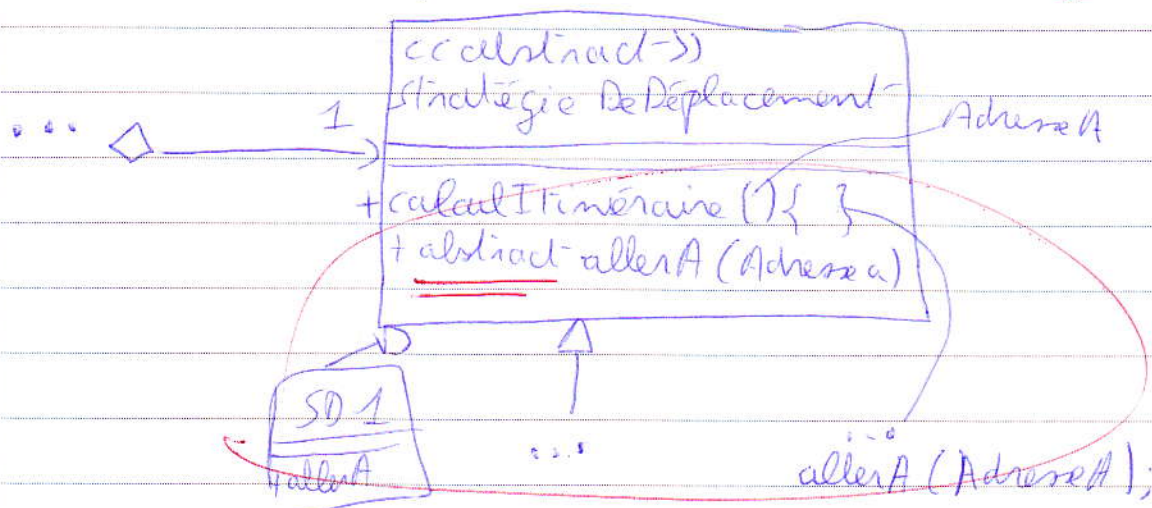 <<abstract>>
StratégieDeDéplacement
... 1
AdresseA
+ calculItinéraire () { }
+ abstract allerA (Adresse a)
SD 1
+ allerA
...
...
allerA (AdresseA);